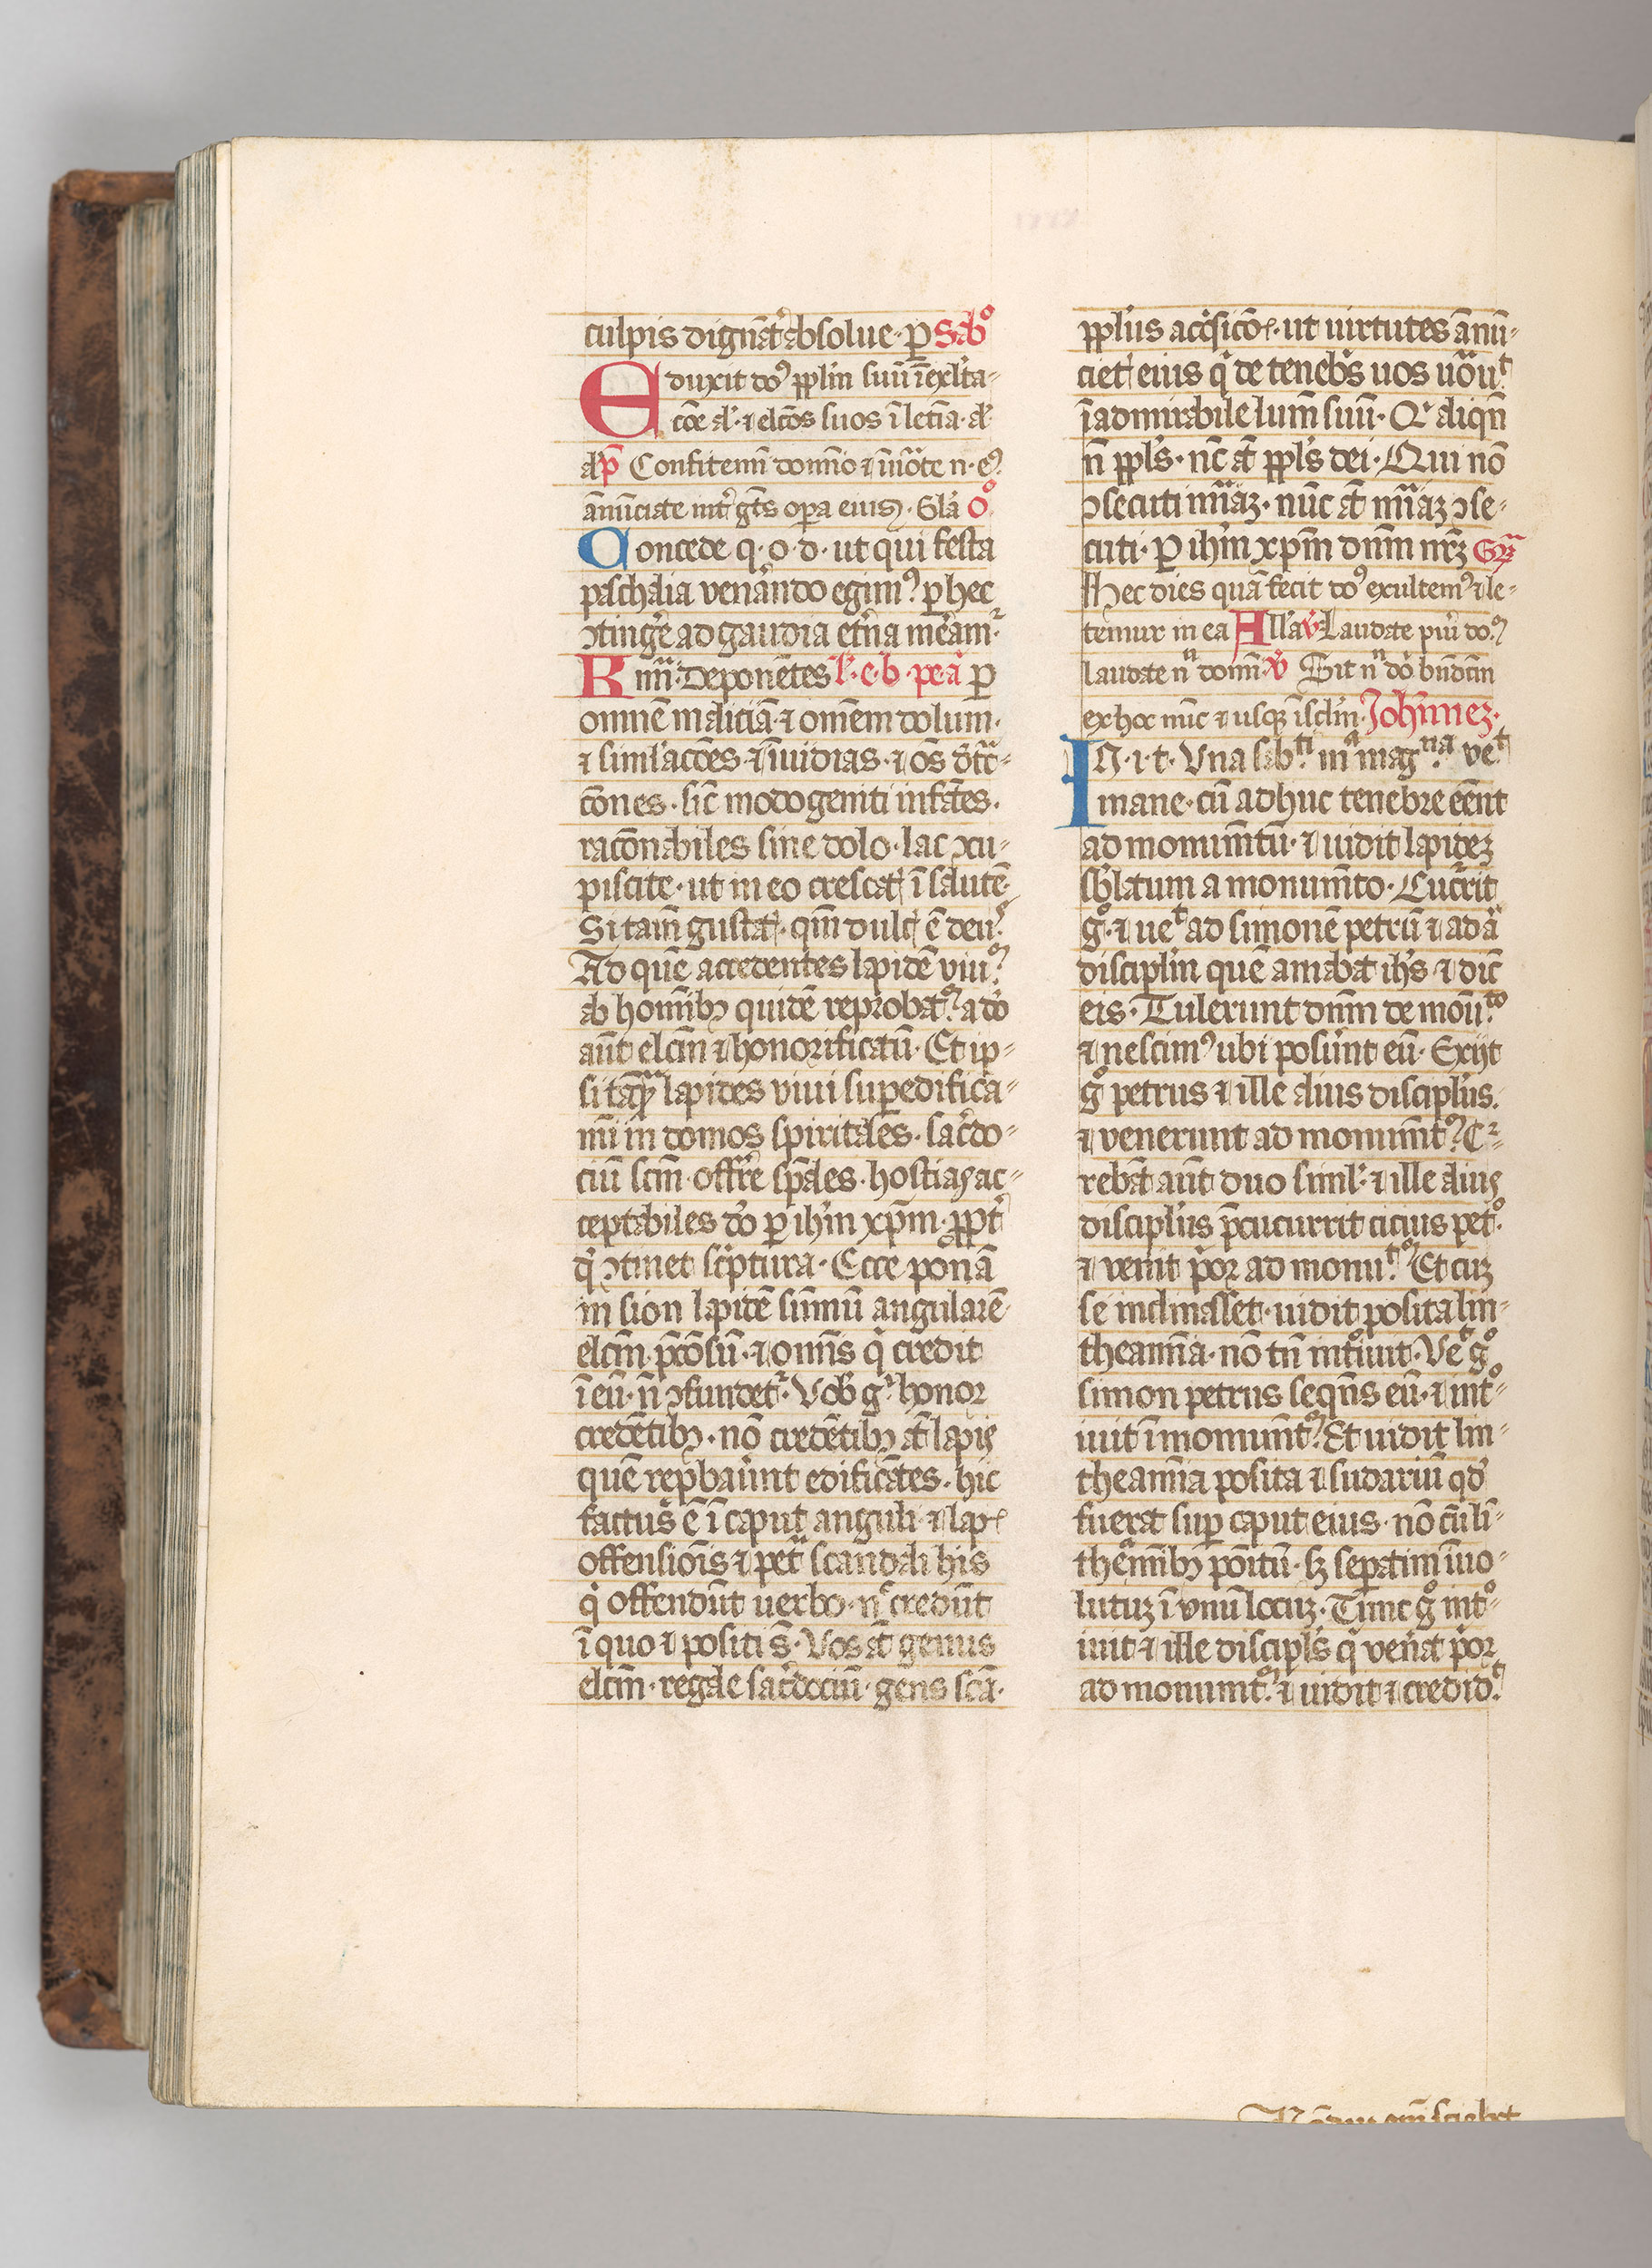 culpis dignāt᷑ absolue · ꝑ Sabº
Eduxit doꝰ pplm̄ suū ī exl̓ta-
c̄oe al̓· ⁊ elc̄os suos ī leticīa· al̓
al̓ p̄ Confitemī domīo ⁊ īuōcate n· eꝰ
ānūciate int̓ gētes oꝑa eiusꝫ · Gl̓a oº
Concede q· o· d· ut qui festa
paschalia venāndo egimꝰ ꝑ hec
ꝯting̓e ad gaudia et̓na meām᷑
Kmī· Deponētes l̓· e· b· pe· a ꝑ
omnē maliciā· ⁊ omēm dolum·
⁊ siml̓ac̄oes· ⁊ īuidias· ⁊ os̄ det̄c-
c̄ones · sic̄ modo geniti infātes·
rac̄onabiles sine dolo· lac ꝯcu-
piscite· ut in eo crescatꝭ ī salutē·
Si tam̄ gustatꝭ· qm̄ dulcꝭ ē deuꝰ
Ad quē accedentes lapidē viuꝰ
ab homībꝫ quidē reprobatꝰ a do̓
aut̄ elcm̄ ⁊ honorificatū· Et ip-
si tāqꝫ lapides viui suꝑedifica-
mī in domos spiritales · sac̓do-
ciū scm̄ · offr̄e sp̄ales · hostias ac-
ceptabiles do̓ ꝑ ih̄m xp̄m· ppt̓
q̓ ꝯtinet sc̓ptura· Ecce ponā
in sion lapidē sūmū angularē
elcm̄ p̄cōsū· ⁊ omn̄s q̓ credit
ī eū· n̄ ꝯfundet᷑· Vob̓ gº honor
credētibꝫ · nō credētibꝫ at̄ lapis
quē repbaūnt edificātes · hic
factus ē ī caput anguli · ⁊ lapꝭ
offensiōis ⁊ pet̓ scandali his
q̓ offendūt uerbo· n̄ credūt
ī quo ⁊ positi s̄· Vos at̄ genus
elcm̄ · regale sac̓dociū· gens scā·
ppl̓us acq̓sicōꝭ· ut uirtutes ānū-
cietꝭ eius q̓ de tenebs̓ uos uōuᵗ
ī admirabile lum̄ suū· Qᵃ aliqn̄
n̄ ppl̓s· nc̄ at̄ ppl̓s dei· Qui nō
ꝯsecuti mīaꝫ· nūc at̄ mīaꝫ ꝯse-
cuti· ꝑ ih̄m xp̄m dnm̄ nr̄ꝫ Gr̄
Hec dies quā fecit doꝰ exultemꝰ ⁊ le-
temur in ea All̓a v̓ Laudate pūi doꝰ
laudate nⁿ domī· v̓ Sit nⁿ do̓ bn̄dm̄
ex hoc nūc ⁊ usqꝫ ī sclm̄· Joh̄nneꝫ·
IN· i· t· Vna sabᵗⁱ mᵃ magⁿᵃ veᵗ
mane· cū adhuc tenebre eēnt
ad monumn̄tū· ⁊ uidit lapideꝫ
sb̓latum a monumn̄to· Cuc̓rit
gº· ⁊ ueᵗ ad simonē petrū ⁊ ad aᵐ
discipl̓m quē amabat ih̄s ⁊ dic̄
eis· Tulerunt dnm̄ de moū·ᵗᵒ
⁊ nescimꝰ ubi posūnt eū· Exijt
gº petrus ⁊ ille alius discipl̓us·
⁊ venerunt ad monumn̄tꝰ Cᵒ-
rebāt aūt duo siml̓· ⁊ ille alius
discipl̓us p̄cucurrit cicius petº·
⁊ venit pᵒr ad monuᵗꝰ· Et cuꝫ
se inclinasset· uidit posita lin-
theamīa· nō tn̄ intºiuit· Veᵗ gº
simon petrus seqn̄s eū· ⁊ intº-
iuit ī monumn̄tꝰ· Et uidit lin-
theamīa posita ⁊ sudariū qd̓
fuerat suꝑ caput eius· nō cū li-
theāmībꝫ poītū· sꝫ sepatim īuo-
lutuꝫ ī vnū locuꝫ· Tūnc gº intº-
iuit ⁊ ille discipl̓s q̓ ven̓at pᵒr
ad monumn̄tꝰ· ⁊ uidit ⁊ crediꝺᵗ